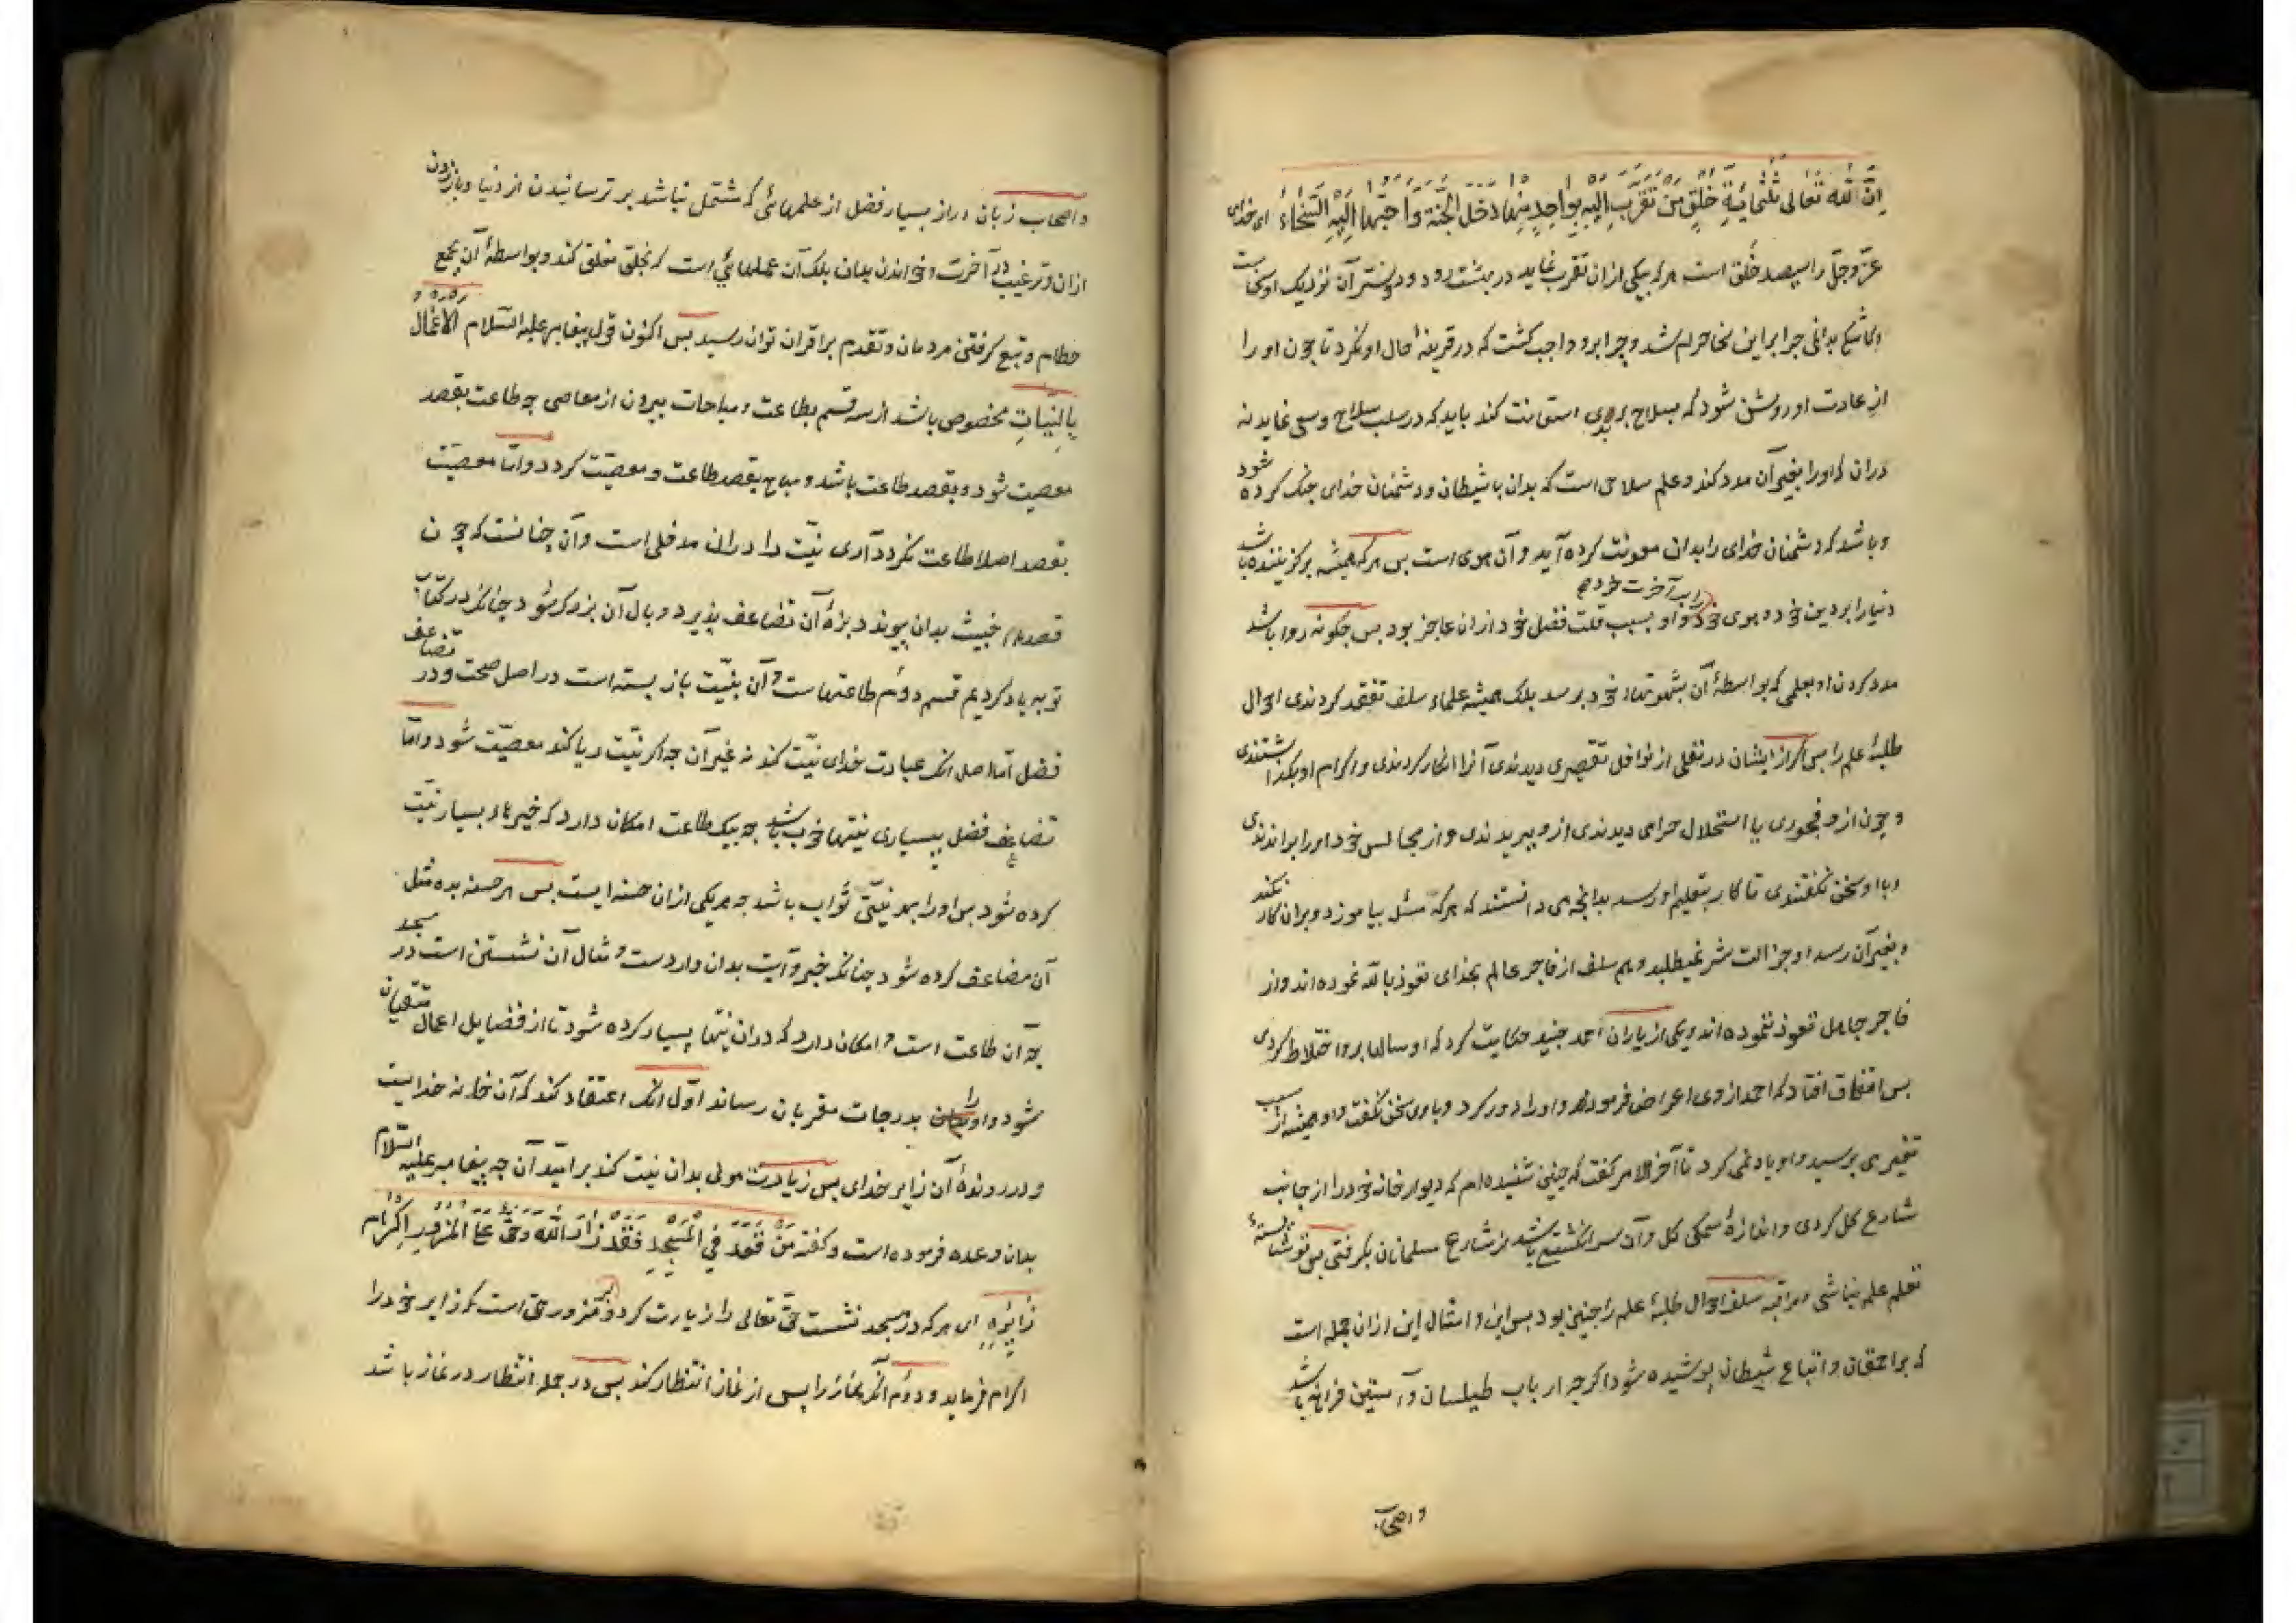 اِنَّ لِلّٰه تَعَالی ثَلٰثَمِائَةِ خُلْقٍ مَنْ تَقَرَّبَ اِلَیْهِ بِوَاحِدٍ مِنْهَا دَخَلَ الْجَنَّةَ وَاَحَبُّهَا اِلَیْهِ السَّخَاءُ ای خدای
عزّ وجلّ را سیصد خُلق است هرکه بیکی ازان تقرب نماید در بهشت رود ودوستر آن نزدیک او سخاست
وکاشکی بدانمی چرا این سخا حرام شد وچرا برو واجب کشت که در قرینهٔ حال او نکرد تا چون او را
از عادت او روشن شود که بسلاح بر بدی استعانت کند باید که در سلب سلاح وسعی نماید نه
دران که اورا بغیر آن مدد کند وعلم سلاحی است که بدان با شیطان ودشمنان خدای جنک کرده شود
وباشد که دشمنان خدای را بدان معونت کرده آید وآن هوی است بس هرکه همیشه برکزیننده باشد
دنیا را بر دین خود وهوی خود را بر آخرت خود واو بسبب قلت فضل خود ازان عاجز بود بس چکونه روا باشد
مدد کردن او بعلمی که بواسطهٔ آن بشهوتهاء خود برسد بلک همیشه علماء سلف تفقد کردندی احوال
طلبهٔ علم را بس اکر از ایشان در نفلی از نوافل تقصیری دیدندی آنرا انکار کردندی واکرام او بکذاشتندی
وچون ازو فجوری یا استحلال حرامی دیدندی ازو ببریدندی واز مجالس خود اورا براندندی
وبا او سخن نکفتندی تا کار بتعلیم او رسد بدانچه می دانستند که هرکه مسئله بیاموزد وبران کار نکند
وبغیر آن رسد او جز آلت شر نمیطلبد وهم سلف از فاجر عالم بخدای تعوذ بالله نموده اند واز
فاجر جاهل تعوذ ننموده اند ویکی از یاران احمد جنید حکایت کرد که او سالها برو اختلاط کردی
بس اتفاق افتاد که احمد ازوی اعراض فرمود واورا دور کرد وباوی سخن نکفت واو همیشه از سبب
تغیر می پرسید واو یاد نمی کرد تا آخر الامر کفت که چنین شنیده ام که دیوار خانه خود را از جانب
شارع کل کردی واندازهٔ سمکی کل وآن سر انکشتی باشد از شارع مسلمانان بکرفتی بس تو شایستهٔ
تعلم علم نباشی ومراقبه سلف احوال طلبهٔ علم را چنین بود بس این وامثال این ازان جمله است
که بر احمقان واتباع شیطان پوشیده شود اکرچه ارباب طیلسان وآستین فراخ باشد
واصحاب
واصحاب زبان دراز بسیار فضل از علمهائی که مشتمل نباشد بر ترسانیدن از دنیا وباززدن
ازان وترغیب در آخرت وخواندن بدان بلک آن علمهائی است که بخلق متعلق کند وبواسطهٔ آن بجمع
حطام وتبع کرفتن مردمان وتقدم بر اقران توان رسید بس اکنون قول پیغامبر علیه السّلام الاعمال
بِالنِّیَّاتِ مخصوص باشد از سه قسم بطاعت ومباحات بیرون از معاصی چه طاعت بقصد
معصیت شود وبقصد طاعت باشد ومباح بقصد طاعت ومعصیّت کردد وامّا معصیّت
بقصد اصلا طاعت نکردد آری نیّت را دران مدخلی است وآن چنانست که چون
قصدهاء خبیث بدان پیوندد بزهٔ آن تضاعف پذیرد ووبال آن بزرک شود چنانکه در کتاب
توبه یاد کردیم قسم دوم طاعتهاست وآن بنیّت باز بسته است در اصل صحت ودر تضاعف
فضل امّا اصل انک عبادت خدای نیّت کند نه غیر آن چه اکر نیّت ریا کند معصیّت شود وامّا
تضاعف فضل ببسیاری نیتهاء خوب باشد چه بیک طاعت امکان دارد که خیرهاء بسیار نیّت
کرده شود بس اورا بهر نیّتی ثواب باشد چه هریکی ازان حسنه ایست بس هر حسنه بده مثل
آن مضاعف کرده شود چنانکه خبر وآیت بدان واردست ومثال آن نشستن است در مسجد
چه آن طاعت است وامکان دارد که دران نیتهاء بسیار کرده شود تا از فضایل اعمال متقیان
شود واو را بدرجات مقربان رساند اوّل انک اعتقاد کند که آن خانه خدایست
ودر روندهٔ آن زایر خدای بس زیارت مولی بدان نیت کند بر امّید آن چه پیغامبر علیه السّلام
بدان وعده فرموده است وکفته مَنْ قَعَدَ فِی الْمَسْجِدِ فَقَدْ زَارَ اللّٰه وَحَقٌّ عَلَی الْمَزُورِ اِکْرَامُ
زَایِرِهِ ای هرکه در مسجد نشست حقّ تعالی را زیارت کرد وبر مزور حق است که زایر خود را
اکرام فرماید ودوم آنکه نماز را بس از نماز انتظار کند بس در جمله انتظار در نماز باشد